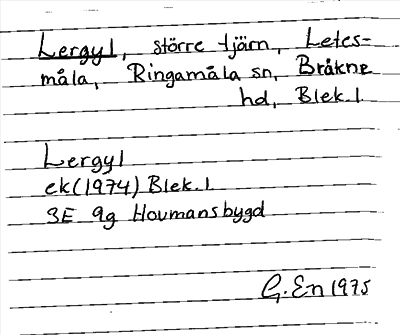 Lergyl, större tjärn, Letes-
måla, Ringamåla sn, Bräkne
hd, Blek.l
Lergyl
ek(1974) Blek.l
3E 9g Hovmansbygd
G. En 1975